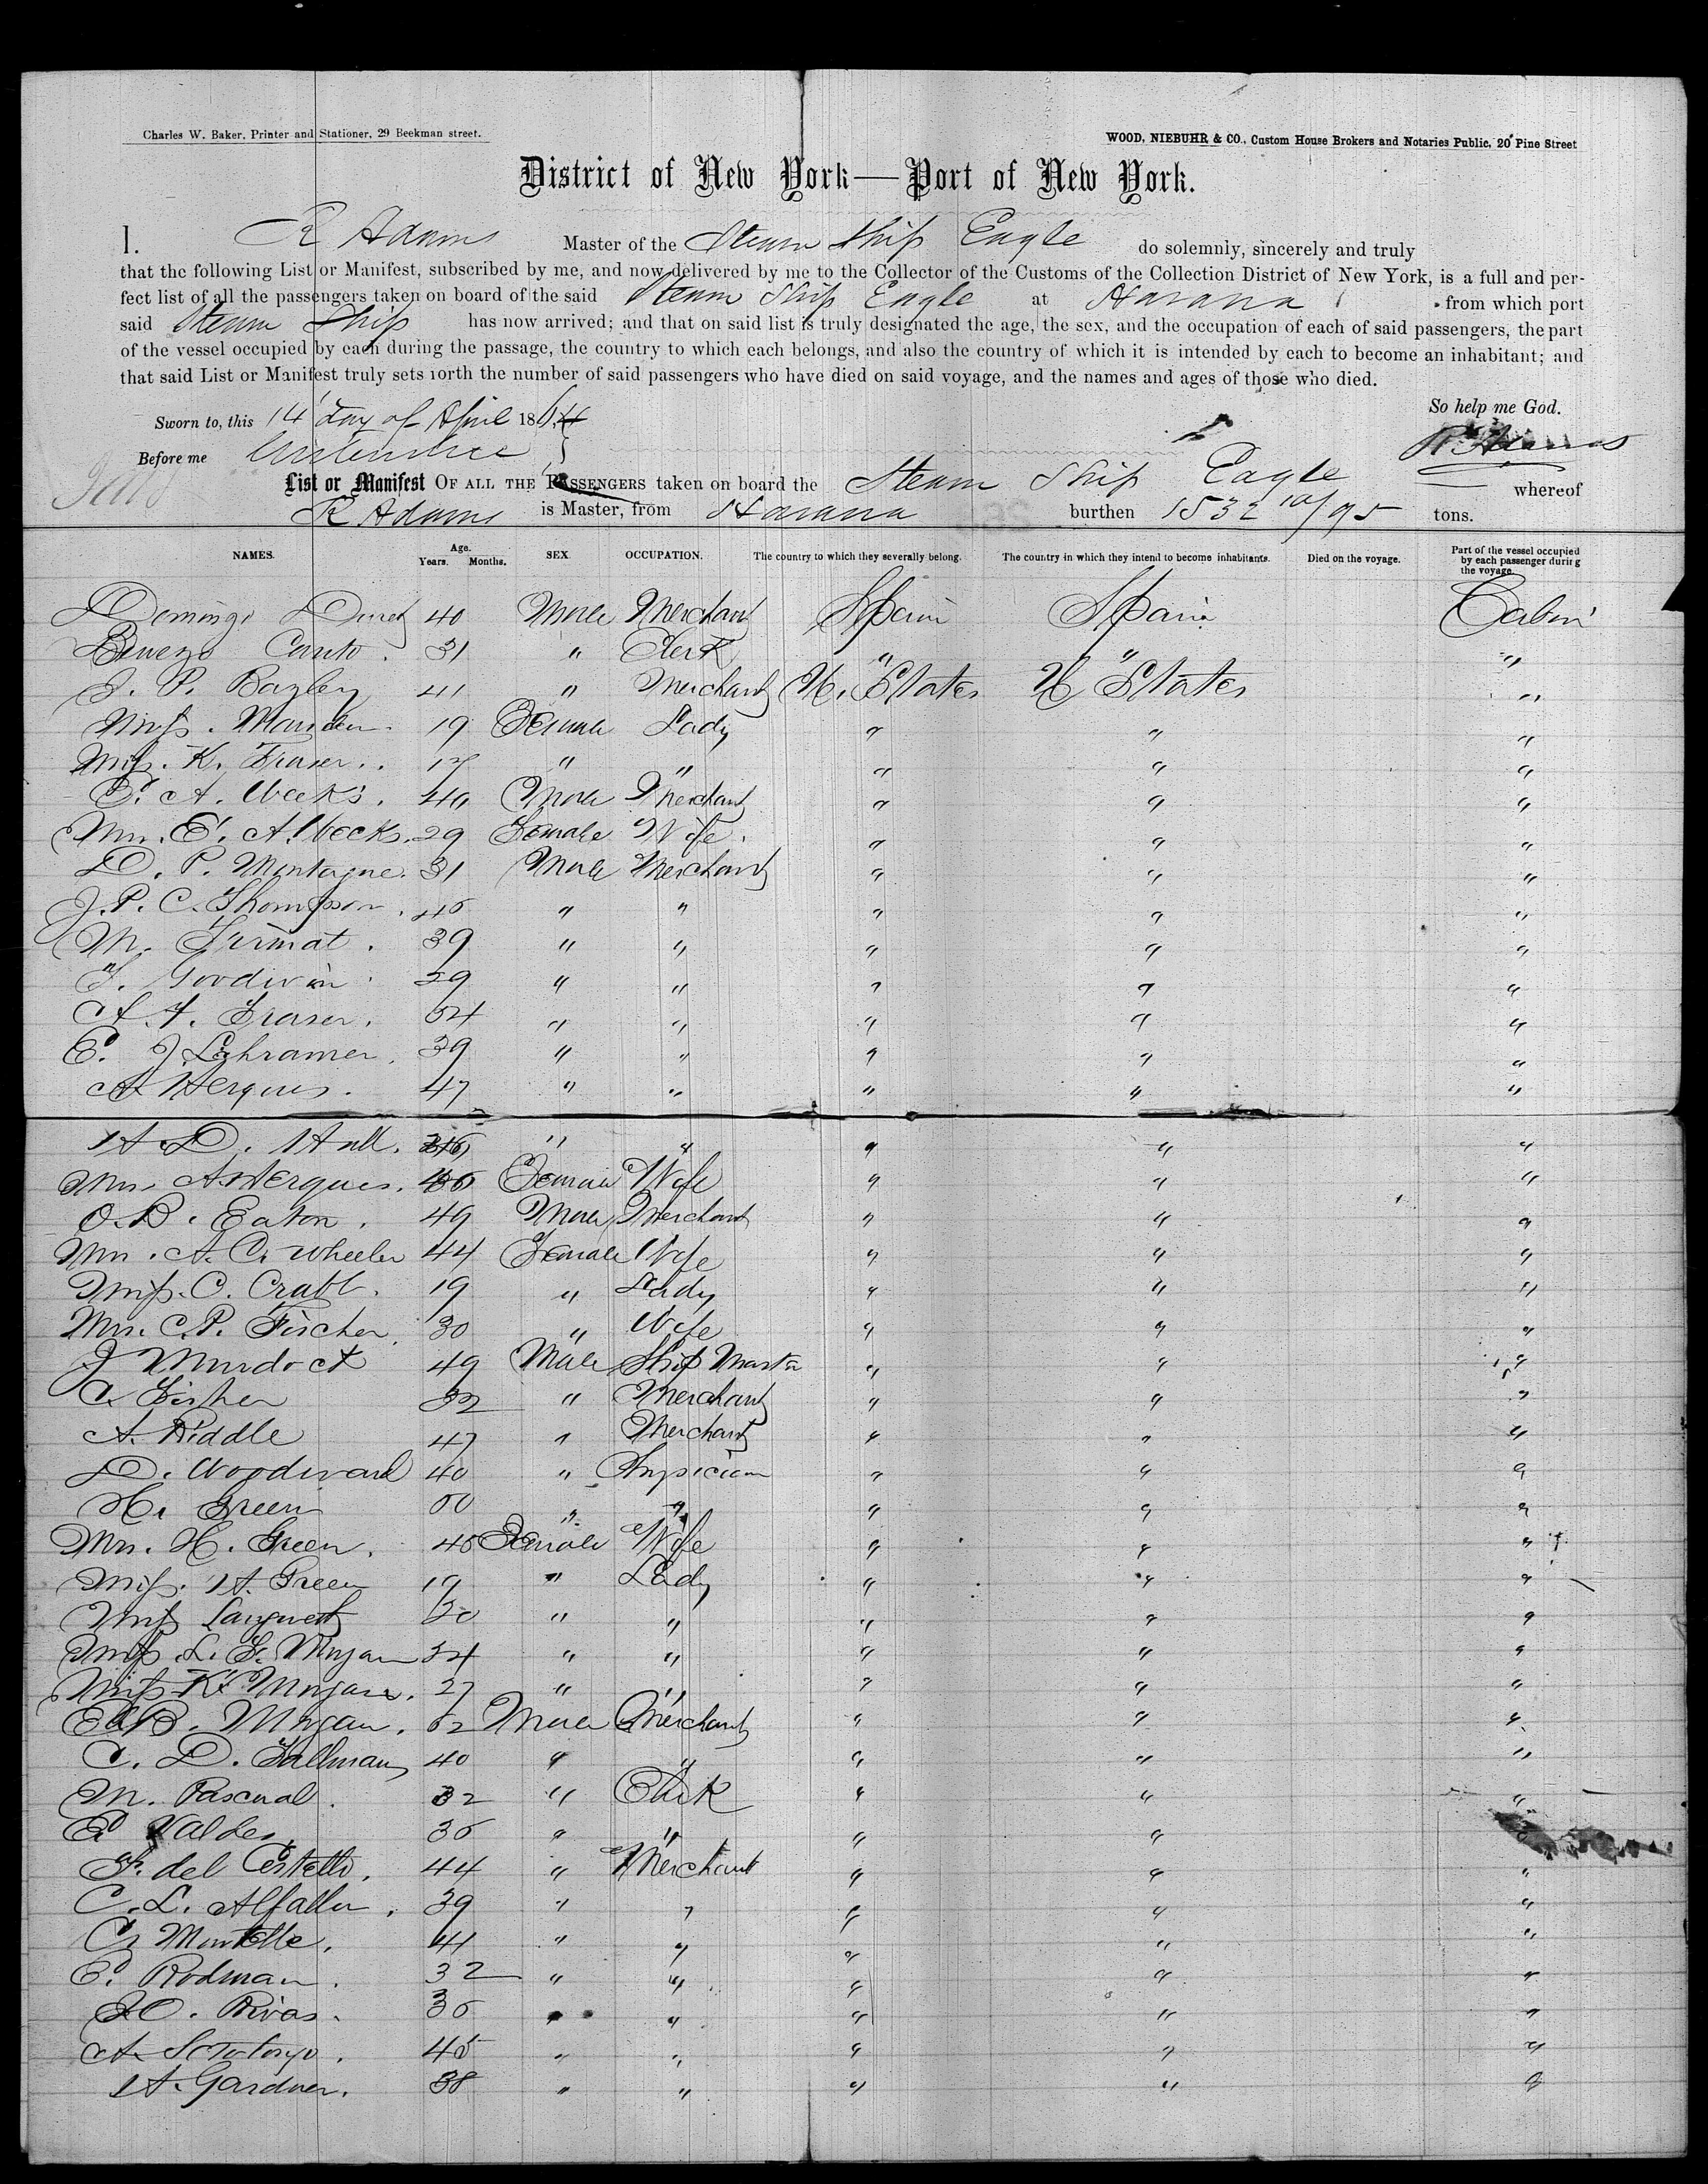 Charles W. Baker, Printer and Stationer, 29 Beekman street.
WOOD, NIEBUHR & CO., Custom House Brokers and Notaries Public, 20 Pine Street
District of New York—Port of New York.
I. R Adams Master of the Steam Ship Eagle do solemnly, sincerely and truly
that the following List or Manifest, subscribed by me, and now delivered by me to the Collector of the Customs of the Collection District of New York, is a full and per-
fect list of all the passengers taken on board of the said Steam Ship Eagle at Havana from which port
said Steam Ship has now arrived; and that on said list is truly designated the age, the sex, and the occupation of each of said passengers, the part
of the vessel occupied by each during the passage, the country to which each belongs, and also the country of which it is intended by each to become an inhabitant; and
that said List or Manifest truly sets forth the number of said passengers who have died on said voyage, and the names and ages of those who died.
Sworn to, this 14 day of April 186 So help me God.
Before me R Adams
List or Manifest OF ALL THE PASSENGERS taken on board the Steam Ship Eagle whereof
R Adams is Master, from Havana burthen 1532 10/95 tons.
NAMES. Age. Years. Months. SEX. OCCUPATION. The country to which they severally belong. The country in which they intend to become inhabitants. Died on the voyage. Part of the vessel occupied by each passenger during the voyage
Domingo 40 Male Merchant Spain Spain Cabin
Canto. 31 " Clerk " " "
J. P. Bagley 41 " Merchant U. States U States "
Miss. 19 Female Lady " " "
Miss. K. Fraser. 17 " " " " "
E. A. Weeks. 40 Male Merchant " " "
Mrs. E. A. Weeks. 29 Female Wife. " " "
D. P. Montagne. 31 Male Merchant " " "
J. P. C. Thompson. 45 " " " " "
M. 39 " " " " "
F. Goodwin 29 " " " " "
A. F. Fraser. 54 " " " " "
E. J. 39 " " " " "
A Herques. 47 " " " " "
H. D. Hall. " " " " "
Mrs. A Herques. Female Wife " " "
O. B. Eaton. 49 Male Merchant " " "
Mrs. A. C. Wheeler 44 Female Wife " " "
Miss. C. Crabb. 19 " Lady " " "
Mrs. C. P. Fischer 30 " Wife " " "
J Murdock 49 Male Ship Master " " "
C. Fisher 32 " Merchant " " "
A. Riddle 47 " Merchant " " "
D. Woodward 40 " Physician " " "
H. Green 50 " " " " "
Mrs. H. Green. 45 Female Wife " " "
Miss. H. Green 19 " Lady " " "
Miss 20 " " " " "
Miss L. F. Morgan 34 " " " " "
Miss K. Morgan. 27 " " " " "
E B. Morgan. 52 Male Merchant " " "
C. D. Tallman 40 " " " " "
M. Pascual. 32 " Clerk " " "
E Valdes 35 " " " "
F. del Castello. 44 " Merchant " " "
C. L. 39 " " " " "
C. 41 " " " " "
E. Rodman. 32 " " " " "
Rivas. 35 " " " " "
A. 45 " " " " "
H. Gardner. 38 " " " " "